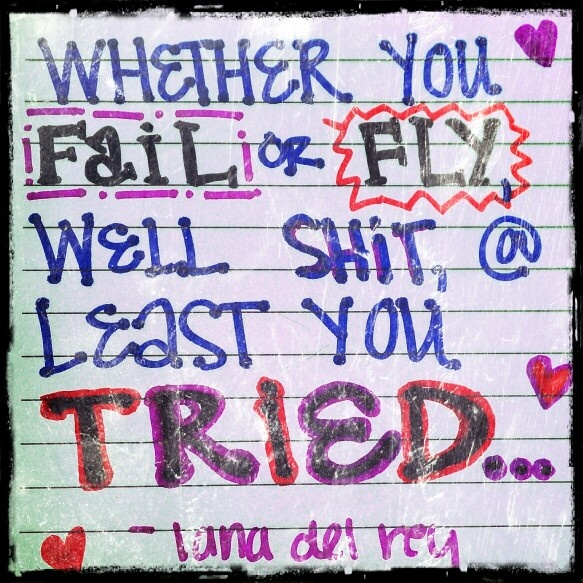 WHETHER YOU
FaiL OR FLY,
WELL SHiT, @
LEaST YOU
TRiED...
- lana del rey